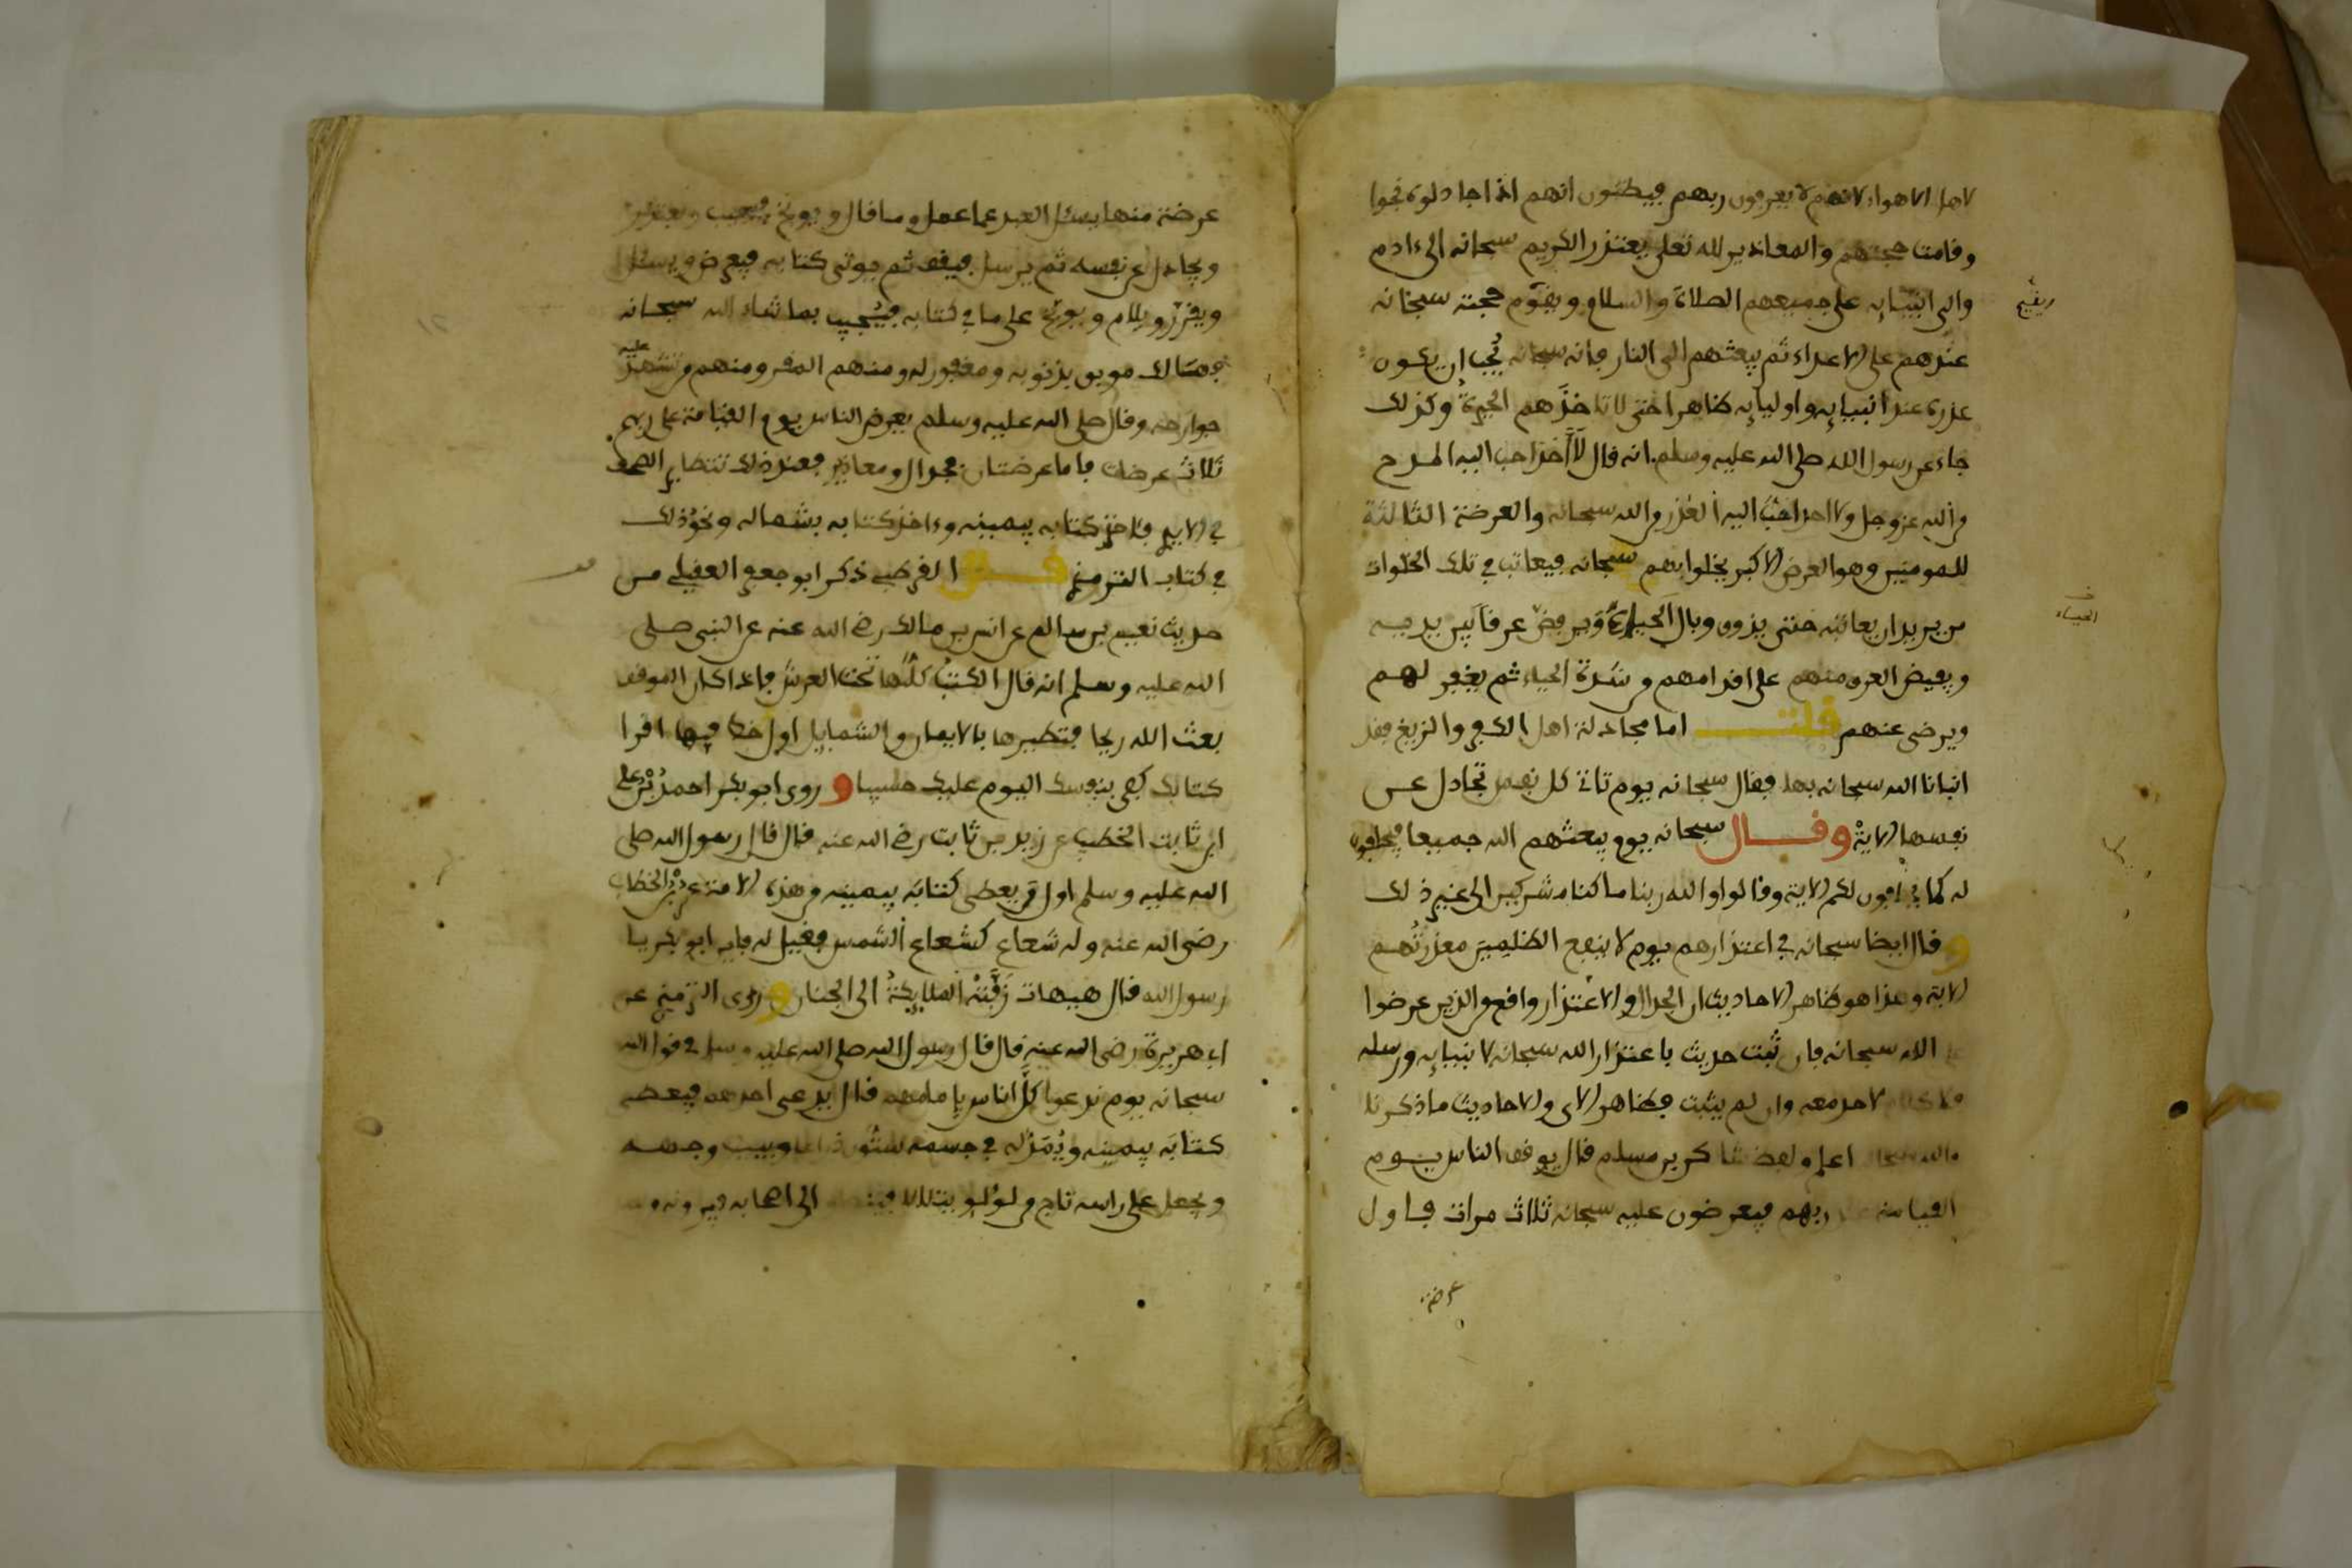 لاهل الاهواء لانهم لا يعرفون ربهم فيظنون انهم اذا جادلوه نجوا
وقامت حجتهم والمعاذير لله تعلى يعتذر الكريم سبحانه الى ءادم
والى انبيائه على جميعهم الصلاة والسلام ويقوم حجته سبحانه
ويقيم
عندهم على الاعداء ثم يبعثهم الى النار فانه سبحانه يُحِب ان يكون
عذره عند انبيائه واوليائه ظاهرا حتى لا تاخذهم الحيرة وكذلك
جاء عن رسول الله صلى الله عليه وسلم انه قال لا احد احب اليه المدح
من الله عز وجل ولا احد احب اليه العُذر من الله سبحانه والعرضة الثالثة
للمومنين وهو العرض الاكبر يخلوا بهم سبحانه فيعاتب في تلك الخلوات
من يريد ان يعاتبه حتى يذوق وبال الحياء ويرفضّ عرقا بين يديه
الحياء
ويفيض العرق منهم على اقدامهم من شدة الحياء ثم يغفر لهم
ويرضى عنهم قلت اما مجادلة اهل الكفر والزيغ فقد
انبانا الله سبحانه بها فقال سبحانه يوم تاتي كل نفس تجادل عن
نفسها الاية وقال سبحانه يوم يبعثهم الله جميعا فيحلفون
له كما يحلفون لكم الاية وقالوا والله ربنا ما كنا مشركين الى غير ذلك
وقال ايضا سبحانه في اعتذارهم يوم لا ينفع الظلمين معذرتُهم
الاية وهذا هو ظاهر الاحاديث ان الجدال والاعتذار واقع من الذين عرضوا
على الله سبحانه فان ثبت حديث باعتذار الله سبحانه لانبيائه ورسله
فلا كلام لاحد معه وان لم يثبت فظاهر الاي والاحاديث ما ذكرنا
والله سبحانه اعلم ولفظ شاكر بن مسلم قال يوقف الناس يوم
القيامة على ربهم فيعرضون عليه سبحانه ثلاث مرات فاول
عرضة
عرضة منها يسئل العبد عما عمل وما قال ويوبخ فيجيب ويعتذر
ويجادل عن نفسه ثم يرسل فيقف ثم يوتى كتابه فيعرض ويسئل
ويقرر ويلام ويوبخ على ما في كتابه فيُجيب بما شاء الله سبحانه
فهنالك موبق بذنوبه ومغفور له ومنهم المقر ومنهم من تشهد عليه
جوارحه وقال صلى الله عليه وسلم يعرض الناس يوم القيامة على ربهم
ثلاث عرضات فاما عرضتان فجدال ومعاذير فعند ذلك تتطاير الصحف
في الايدي فئاخذ كتابه بيمينه وءاخذ كتابه بشماله ونحو ذلك
في كتاب الترمذي قال القرطبي ذكر ابو جعفر العقيلي من
حديث نعيم بن سالم عن انس بن مالك رضي الله عنه عن النبي صلى
الله عليه وسلم انه قال الكتبُ كلُّها تحت العرش فاذا كان الموقف
بعث الله ريحا فتطيرها بالايمان والشمايل اول خط فيها اقرا
كتابك كفى بنفسك اليوم عليك حسيبا وروى ابو بكر احمد بن علي
ابن ثابت الخطيب عن زيد بن ثابت رضي الله عنه قال قال رسول الله صلى
الله عليه وسلم اول من يعطى كتابَه بيمينه من هذه الامة عمر بن الخطاب
رضى الله عنه وله شعاع كشعاع الشمس فقيل له فاين ابو بكر يا
رسول الله قال هيهات زَفَّته الملايكةُ الى الجنان وروى الترمذي عن
ابي هريرة رضى الله عنه قال قال رسول الله صلى الله عليه وسلم في قول الله
سبحانه يوم ندعوا كلَّ اناس بإمامهم قال يدعى احدهم فيعطى
كتابَه بيمينه ويُمَدُّ له في جسمه ستون ذراعا ويبيض وجهه
ويجعل على راسه تاج من لؤلؤ يتلالا فينطلق الى اصحابه فيرونه من